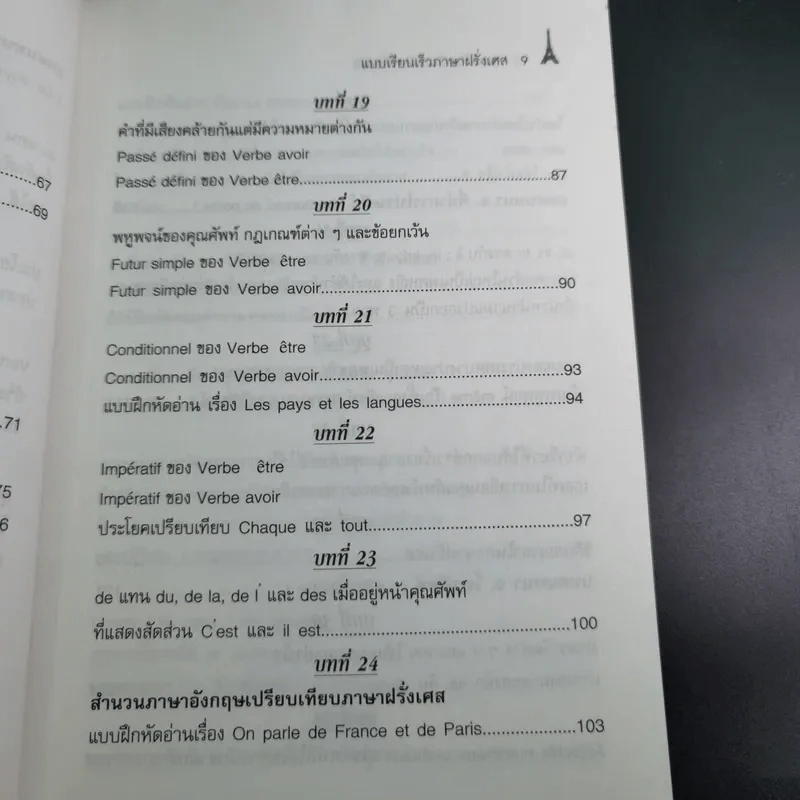 แบบเรียนเร็วภาษาฝรั่งเศส 9
บทที่ 19
คำที่มีเสียงคล้ายกันแต่มีความหมายต่างกัน
Passé défini ของ Verbe avoir
Passé défini ของ Verbe être...87
บทที่ 20
พหูพจน์ของคุณศัพท์ กฎเกณฑ์ต่าง ๆ และข้อยกเว้น
Futur simple ของ Verbe être
Futur simple ของ Verbe avoir...90
บทที่ 21
Conditionnel ของ Verbe être
Conditionnel ของ Verbe avoir...93
แบบฝึกหัดอ่าน เรื่อง Les pays et les langues...94
บทที่ 22
Impératif ของ Verbe être
Impératif ของ Verbe avoir
ประโยคเปรียบเทียบ Chaque และ tout...97
บทที่ 23
de แทน du, de la, de l' และ des เมื่ออยู่หน้าคุณศัพท์
ที่แสดงสัดส่วน C'est และ il est...100
บทที่ 24
สำนวนภาษาอังกฤษเปรียบเทียบภาษาฝรั่งเศส
แบบฝึกหัดอ่านเรื่อง On parle de France et de Paris...103
67
69
71
75
6